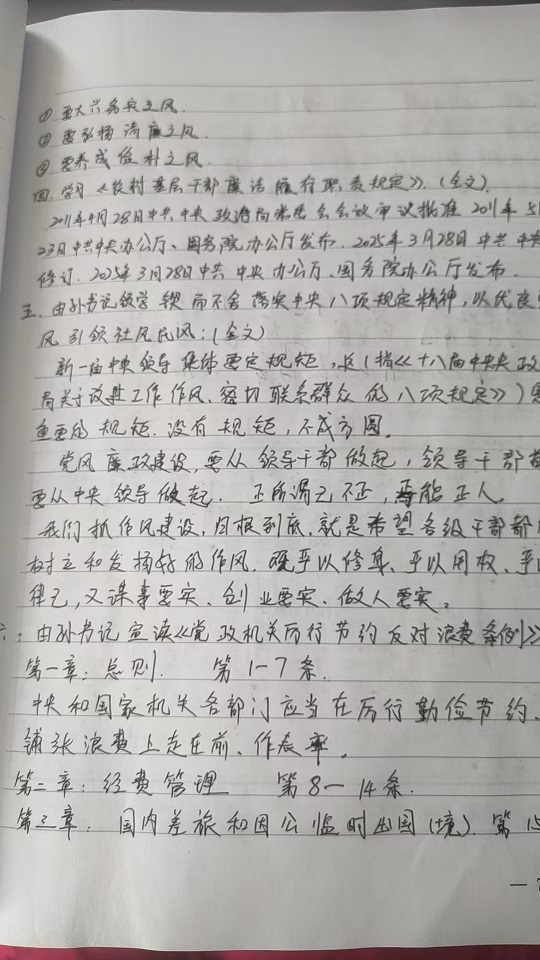 ① 要大兴务实之风.
② 要弘扬清廉之风.
③ 要养成俭朴之风.
四. 学习《农村基层干部廉洁履行职责规定》. (全文).
2011年4月28日中共中央政治局常委会会议审议批准 2011年5月
23日中共中央办公厅、国务院办公厅发布. 2025年3月28日中共中央
修订. 2025年3月28日中共中央办公厅、国务院办公厅发布.
五. 由孙书记领学 锲而不舍落实中央八项规定精神, 以优良
风引领社风民风: (全文)
新一届中央领导集体要定规矩, (指《十八届中央政
局关于改进工作作风、密切联系群众的八项规定》)
重要的规矩. 没有规矩, 不成方圆.
党风廉政建设, 要从领导干部做起, 领导干部
要从中央领导做起. 正所谓己不正, 焉能正人.
我们抓作风建设, 归根到底, 就是希望各级干部都
树立和发扬好的作风. 既严以修身、严以用权、严
律己, 又谋事要实、创业要实、做人要实。
六: 由孙书记宣读《党政机关厉行节约反对浪费条例》
第一章: 总则. 第1-7条.
中央和国家机关各部门应当在厉行勤俭节约、
铺张浪费上走在前、作表率.
第二章: 经费管理 第8-14条.
第三章: 国内差旅和因公临时出国(境). 第15